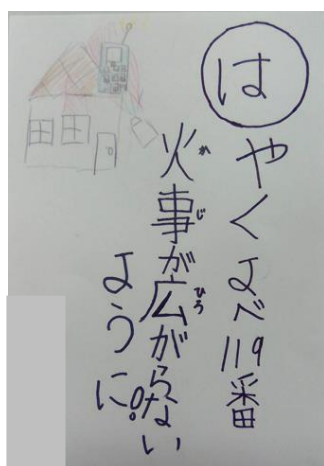 は
やくよべ119番
火事が広がらない
ように!